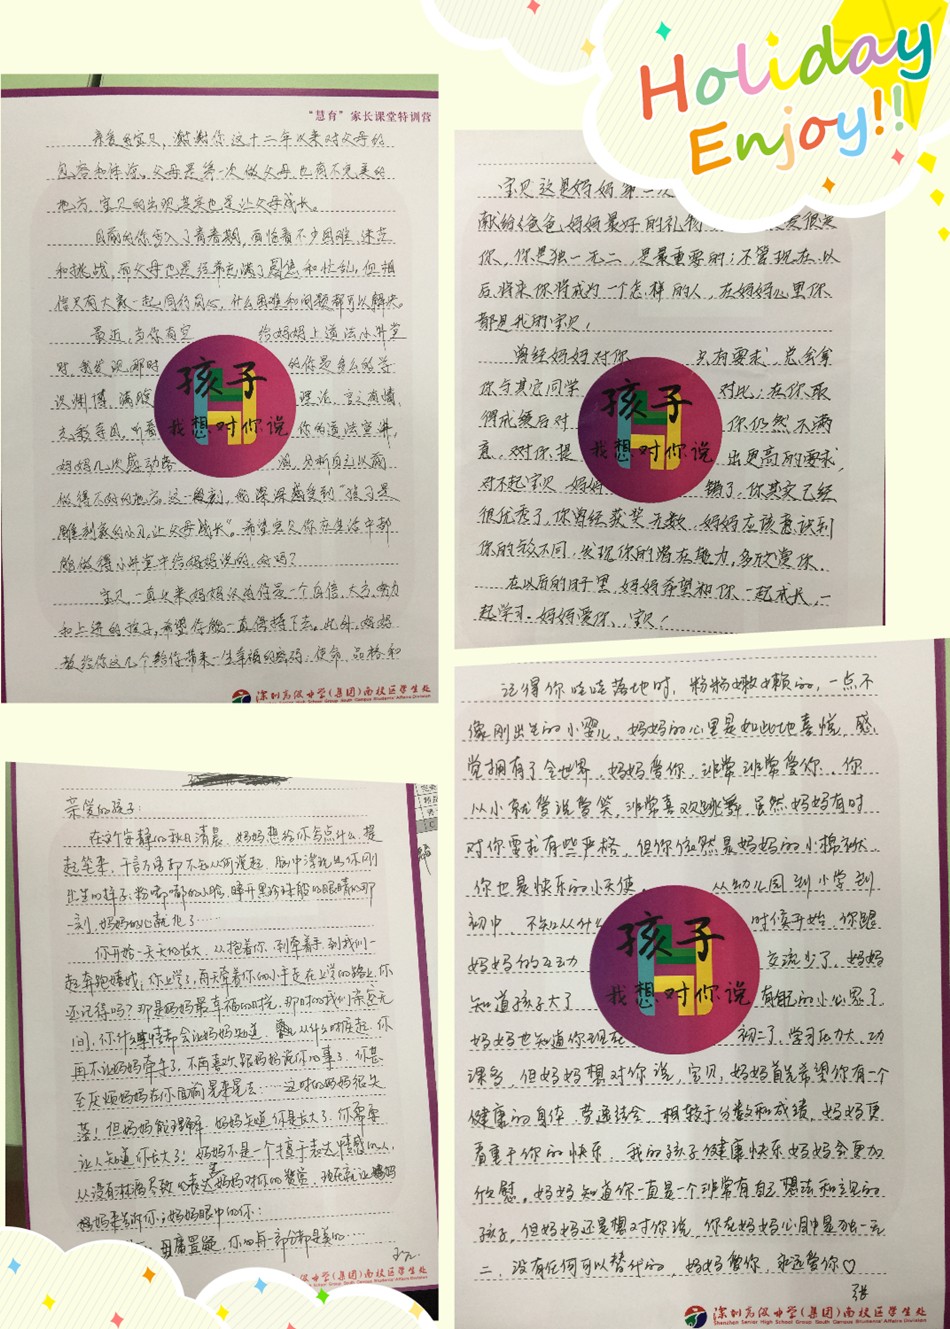 Holiday
Enjoy!!
"慧育"家长课堂特训营
亲爱的宝贝,谢谢你这十二年以来对父母的
包容和体谅。父母是第一次做父母,也有不完美的
地方,宝贝的出现其实也是让父母成长。
目前的你步入了青春期,面临着不少困难、迷茫
和挑战,而父母也是经常充满了焦虑和忙乱,但相
信只有大家一起同行同心,什么困难和问题都可以解决。
最近,当你有空 给妈妈上道法小课堂
时,我发现那时 的你是多么的学
识渊博、满腹 理论、言之有情、
言教导风,听着 你的道法宣讲,
妈妈几次感动落 泪,分析自己以前
做得不好的地方。这一般刻,我深深感受到"孩子是
雕刻我的小刀,让父母成长"。希望宝贝你在生活中都
能做得小课堂中给妈妈说的,好吗?
宝贝,一直以来妈妈认为你是一个自信、大方、努力
和上进的孩子,希望你能一直保持下去。此外,妈妈
教给你这几个给你带来一生幸福的密码:使命、品格和
深圳高级中学(集团)南校区学生处
孩子
我想对你说
宝贝这是妈妈第一次
献给爸爸、妈妈最好的礼物 爱很是
你,你是独一无二,是最重要的;不管现在、以
后将来你将成为一个怎样的人,在妈妈心里你
都是我的宝贝!
曾经妈妈对你 只有要求,总会拿
你与其它同学 对比;在你取
得成绩后对 你仍然不满
意,对你提 出更高的要求,
对不起宝贝,妈妈 错了,你其实已经
很优秀了,你曾经获奖无数,妈妈应该意识到
你的与众不同,发现你的潜在能力,多欣赏你。
在以后的日子里,妈妈希望和你一起成长,一
起学习。妈妈爱你,宝贝!
孩子
我想对你说
亲爱的孩子:
在这个安静的秋日清晨,妈妈想给你写点什么,提
起笔来,千言万语都不知从何说起,脑中浮现出你刚
出生的样子,粉嘟嘟的小脸,睁开黑珍珠般的眼睛的那
一刻,妈妈的心融化了……
你开始一天天的长大,从抱着你,到牵着手,到我们一
起奔跑嬉戏;你上学了,每天牵着你的小手走在上学的路上,你
还记得吗?那是妈妈最幸福的时光,那时的我们亲密无
间,你什么事情都会让妈妈知道,从什么时候起,你
再不让妈妈牵手了,不再喜欢跟妈妈说你的事了,你甚
至厌烦妈妈在你面前晃来晃去……这时的妈妈很失
落!但妈妈能理解,妈妈知道你是长大了,你需要
让人知道你长大了!妈妈不是一个擅于表达情感的人,
从没有淋漓尽致的表达妈妈对你的赞赏,现在就让妈妈
妈妈来告诉你:妈妈眼中的你:
毋庸置疑,你的每一部分都是美的……
深圳高级中学(集团)南校区学生处
记得你呱呱落地时,粉粉嫩嫩的,一点不
像刚出生的小婴儿,妈妈的心里是如此地喜悦,感
觉拥有了全世界,妈妈爱你,非常非常爱你。你
从小就爱说爱笑,非常喜欢跳舞,虽然妈妈有时
对你要求有些严格,但你依然是妈妈的小棉袄,
你也是快乐的小天使。 从幼儿园到小学到
初中,不知从什么 时候开始,你跟
妈妈的互动 交流少了,妈妈
知道孩子大了 有自己的小心思了
妈妈也知道你现在 初二了,学习压力大、功
课多,但妈妈想对你说,宝贝,妈妈首先希望你有一个
健康的身体,劳逸结合,相较于分数和成绩,妈妈更
看重于你的快乐,我的孩子健康快乐妈妈会更加
欣慰。妈妈知道你一直是一个非常有自己想法和主见的
孩子,但妈妈还是想对你说,你在妈妈心目中是独一无
二,没有任何可以替代的,妈妈爱你,永远爱你♡
张
孩子
我想对你说
深圳高级中学(集团)南校区学生处
Shenzhen Senior High School Group South Campus Students' Affairs Division